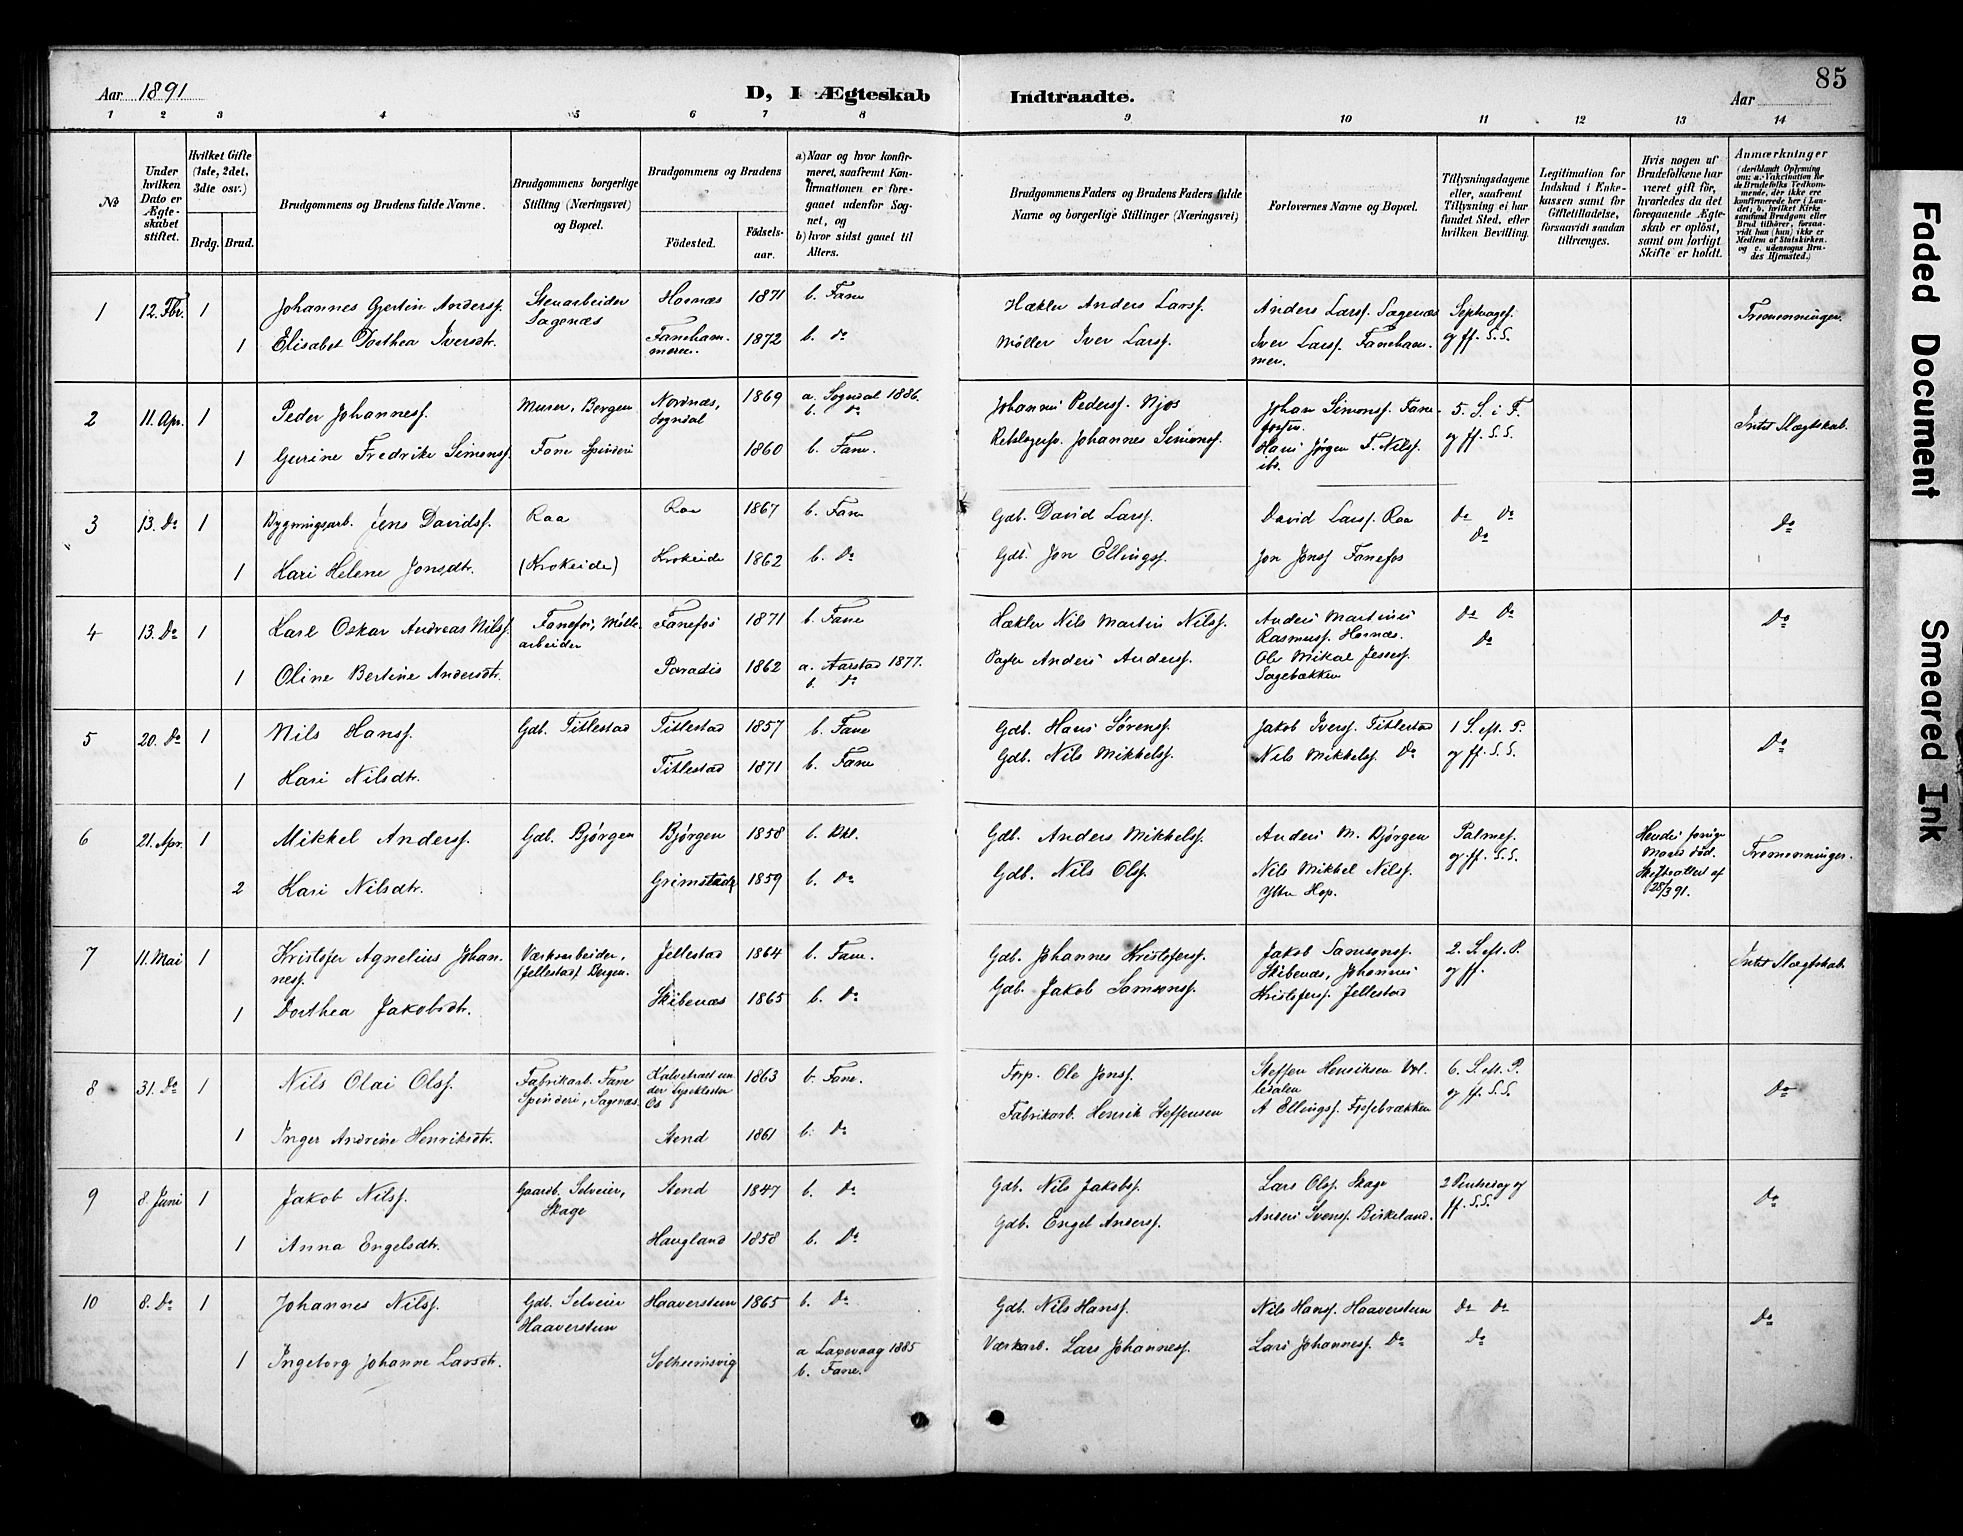 85
Aar 1891
D, I Ægteskab
Indtraadte.
Aar
1 2 3 4 5 6 7 8 9 10 11 12 13 14
No
Under hvilken Dato er Ægteskabet stiftet.
Hvilket Gifte (1ste, 2det, 3die osv.)
Brdg. Brud.
Brudgommens og Brudens fulde Navne.
Brudgommens borgerlige Stilling (Næringsvei) og Bopæl.
Brudgommens og Brudens
Fødested.
Fødselsaar.
a) Naar og hvor konfirmeret, saafremt Konfirmationen er foregaaet udenfor Sognet, og
b) hvor sidst gaaet til Alters.
Brudgommens Faders og Brudens Faders fulde Navne og borgerlige Stillinger (Næringsvei)
Forlovernes Navne og Bopæl.
Tillysningsdagene eller, saafremt Tillysning ei har fundet Sted, efter hvilken Bevilling.
Legitimation for Indskud i Enkekassen samt for Giftetilladelse, forsaavidt saadan tiltrænges.
Hvis nogen af Brudefolkene har været gift før, hvorledes da det foregaaende Ægteskab er opløst, samt om lovligt Skifte er holdt.
Anmærkninger
(deriblandt Oplysning om: a. Vakcination for de Brudefolks Vedkommende, der ikke ere konfirmerede her i Landet; b. hvilket Kirkesamfund Brudgom eller Brud tilhører, forsaavidt han (hun) ikke er Medlem af Statskirken, og c. udensogns Brudes Hjemsted.)
1 12. Fbr. 1 Johannes Gjertin Andersf. Stenarbeider Sagenæs Hornæs 1871 b. Fane Hækler Anders Larsf. Anders Larsf. Sagenæs Septuagef. Tremenninger.
1 Elisabet Dorthea Iversdtr. Fanehammeren. 1872 b. Do Møller Iver Larsf. Iver Larsf. Fanehammer. og ff. S.S.
2 11. Apr. 1 Peder Johannesf. Murer, Bergen Nornæs, Sogndal 1869 a. Sogndal 1886. b. Do Johannes Pedersf. Njøs Johan Simonsf. Fanefossen. 5. S. i F. Intet Slægtskab.
1 Gurine Fredrike Simonsf. Fane Spinderi 1860 b. Fane. Johannes Simonsf. Hans Jørgen F. Nilsf. ibs. og ff. S.S.
3 13. Do 1 Bygningsarb. Jens Davidsf. Raa Raa 1867 b. Fane Gdb. David Larsf. David Larsf. Raa Do Do Do
1 Kari Helene Jonsdtr. (Krokeide) Krokeide 1862 b. Do Gdb. Jon Ellingsf. Jon Jonsf Fanefos Do
4 13. Do 1 Karl Oskar Andreas Nilsf. Fanefos, Møllearbeider Fanefos 1871 b. Fane Hækler Nils Martin Nilsf. Anders Martinus Rasmusf. Hornæs. Do Do Do
1 Oline Bertine Andersdtr. Paradis 1862 a. Aarstad 1877. b. Do Anders Andersf. Ole Mikal Jessesf. Sagebækken Do
5 20. Do 1 Nils Hansf. Gdb. Titlestad Titlestad 1857 b. Fane Gdb. Hans Sørensf. Jakob Iversf. Titlestad 1 S. eft. P. Do
1 Kari Nilsdtr. Titlestad 1871 b. Fane Gdb. Nils Mikkelsf. Nils Mikkelsf. Do og ff. S.S.
6 21. Apr. 1 Mikkel Andersf. Gdb. Bjørgen Bjørgen 1858 b. Bkl. Gdb. Anders Mikkelsf. Anders M. Bjørgen Palmes. Hendes forrige Mand død. Skifteattest af 28/3 91. Tremenninger.
2 Kari Nilsdtr. Grimstad 1859 b. Do Gdb. Nils Olsf. Nils Mikkel Nilsf. Ytre Hop. og ff. S.S.
7 11. Mai 1 Kristofer Agnelius Johannesf. Værksarbeider, (Jellestad) Bergen. Jellestad 1864 b. Fane. Gdb. Johannes Kristofersf. Jakob Samsonsf. Skibenæs, Johannes 2. S. eft. P. og ff. Intet Slægtskab
1 Dorthea Jakobsdtr. Skibenæs 1865 b. Do Gdb. Jakob Samsonsf. Kristofersf. Jellestad
8 31. Do 1 Nils Olai Olsf. Fabrikarb. Fane Spinderi, Sagenæs. Kalvetræet under Lysekloster Os 1863 b. Fane. Forp. Ole Jonsf. Steffen Henriksen 6. S. eft. P. Do
1 Inger Andrine Henriksdtr. Stend 1861 b. Do Fabrikarb. Henrik Steffensen A Ellingsf. Fossebrækken og ff. S.S.
9 8. Juni 1 Jakob Nilsf. Gaardb. Selveier, Skage Stend 1847 b. Do Gdb. Nils Jakobsf. Lars Olsf. Skage 2 Pintsedag og ff. S.S. Do
1 Anna Engelsdtr. Haugland 1858 b. Do Gdb. Engel Andersf. Anders Svensf. Birkeland.
10 8. Do 1 Johannes Nilsf. Gdb. Selveier Haaverstein Haaverstein 1865 b. Do Gdb. Nils Hansf. Nils Hansf. Haaverstein Do Do Do
1 Ingeborg Johanne Larsdtr. Solheimsvig a Laxevaag 1885 b. Fane. Værkarb. Lars Johannesf. Lars Johannesf. Do Do
Faded Document
Smeared Ink